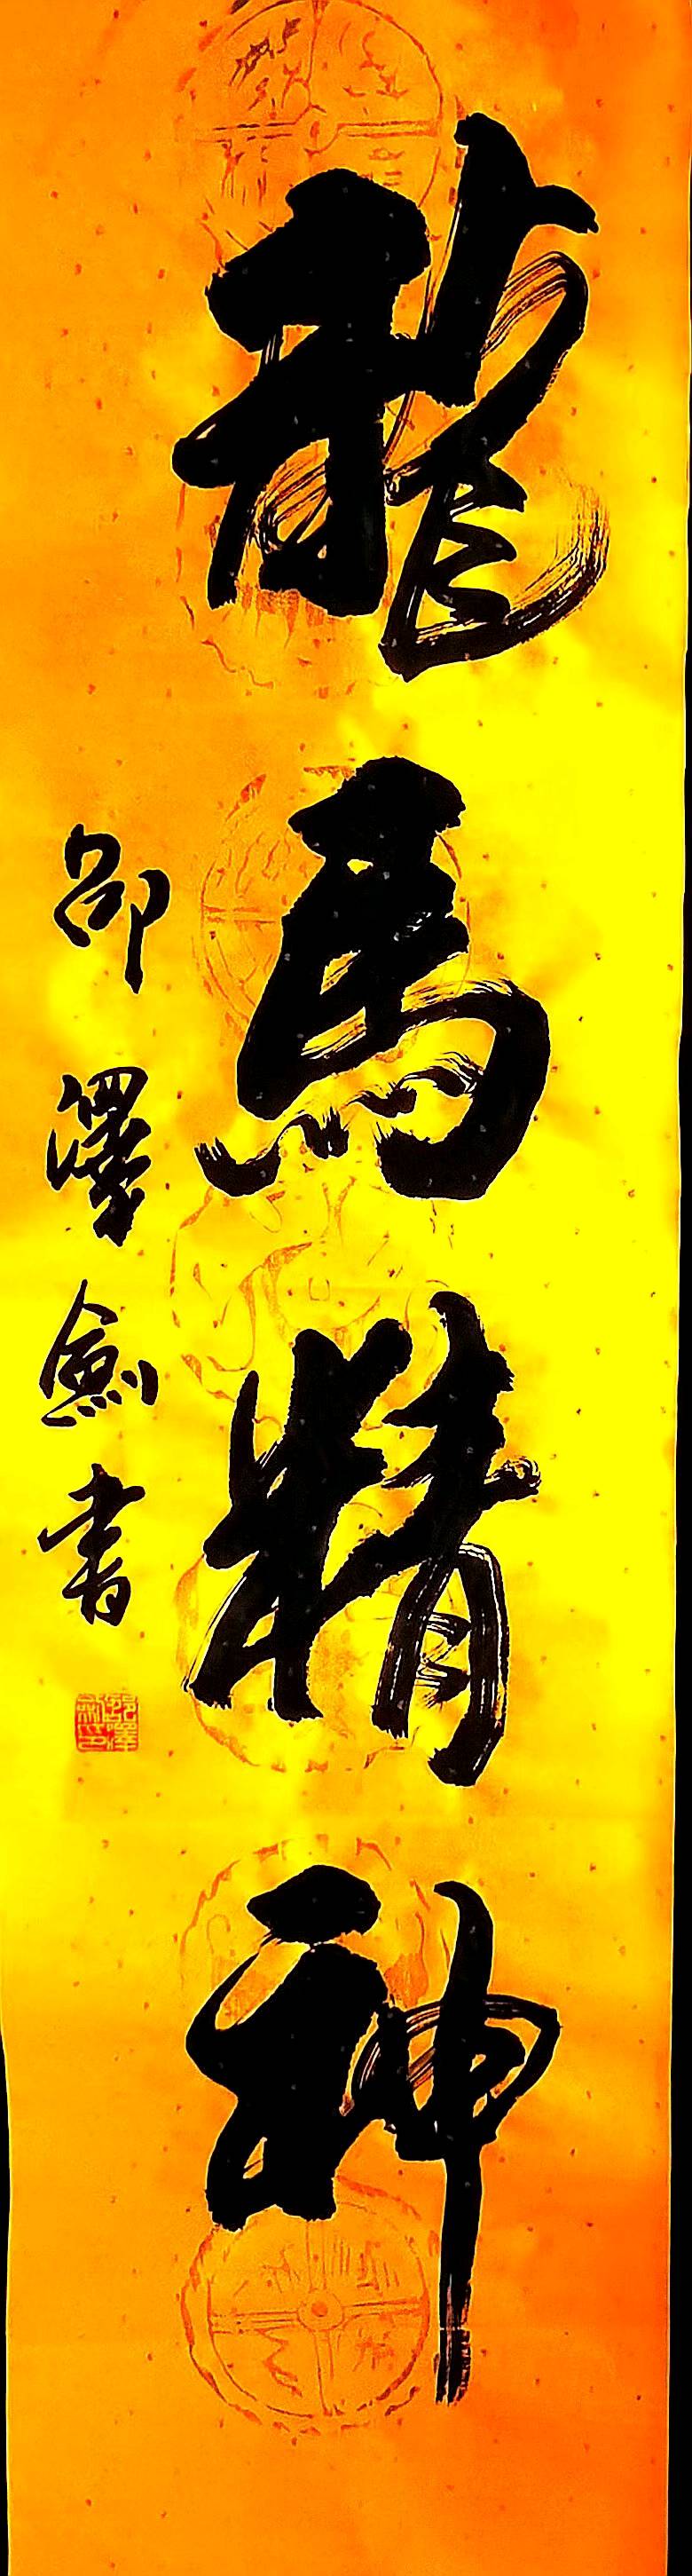 龍馬精神
邵澤劍書